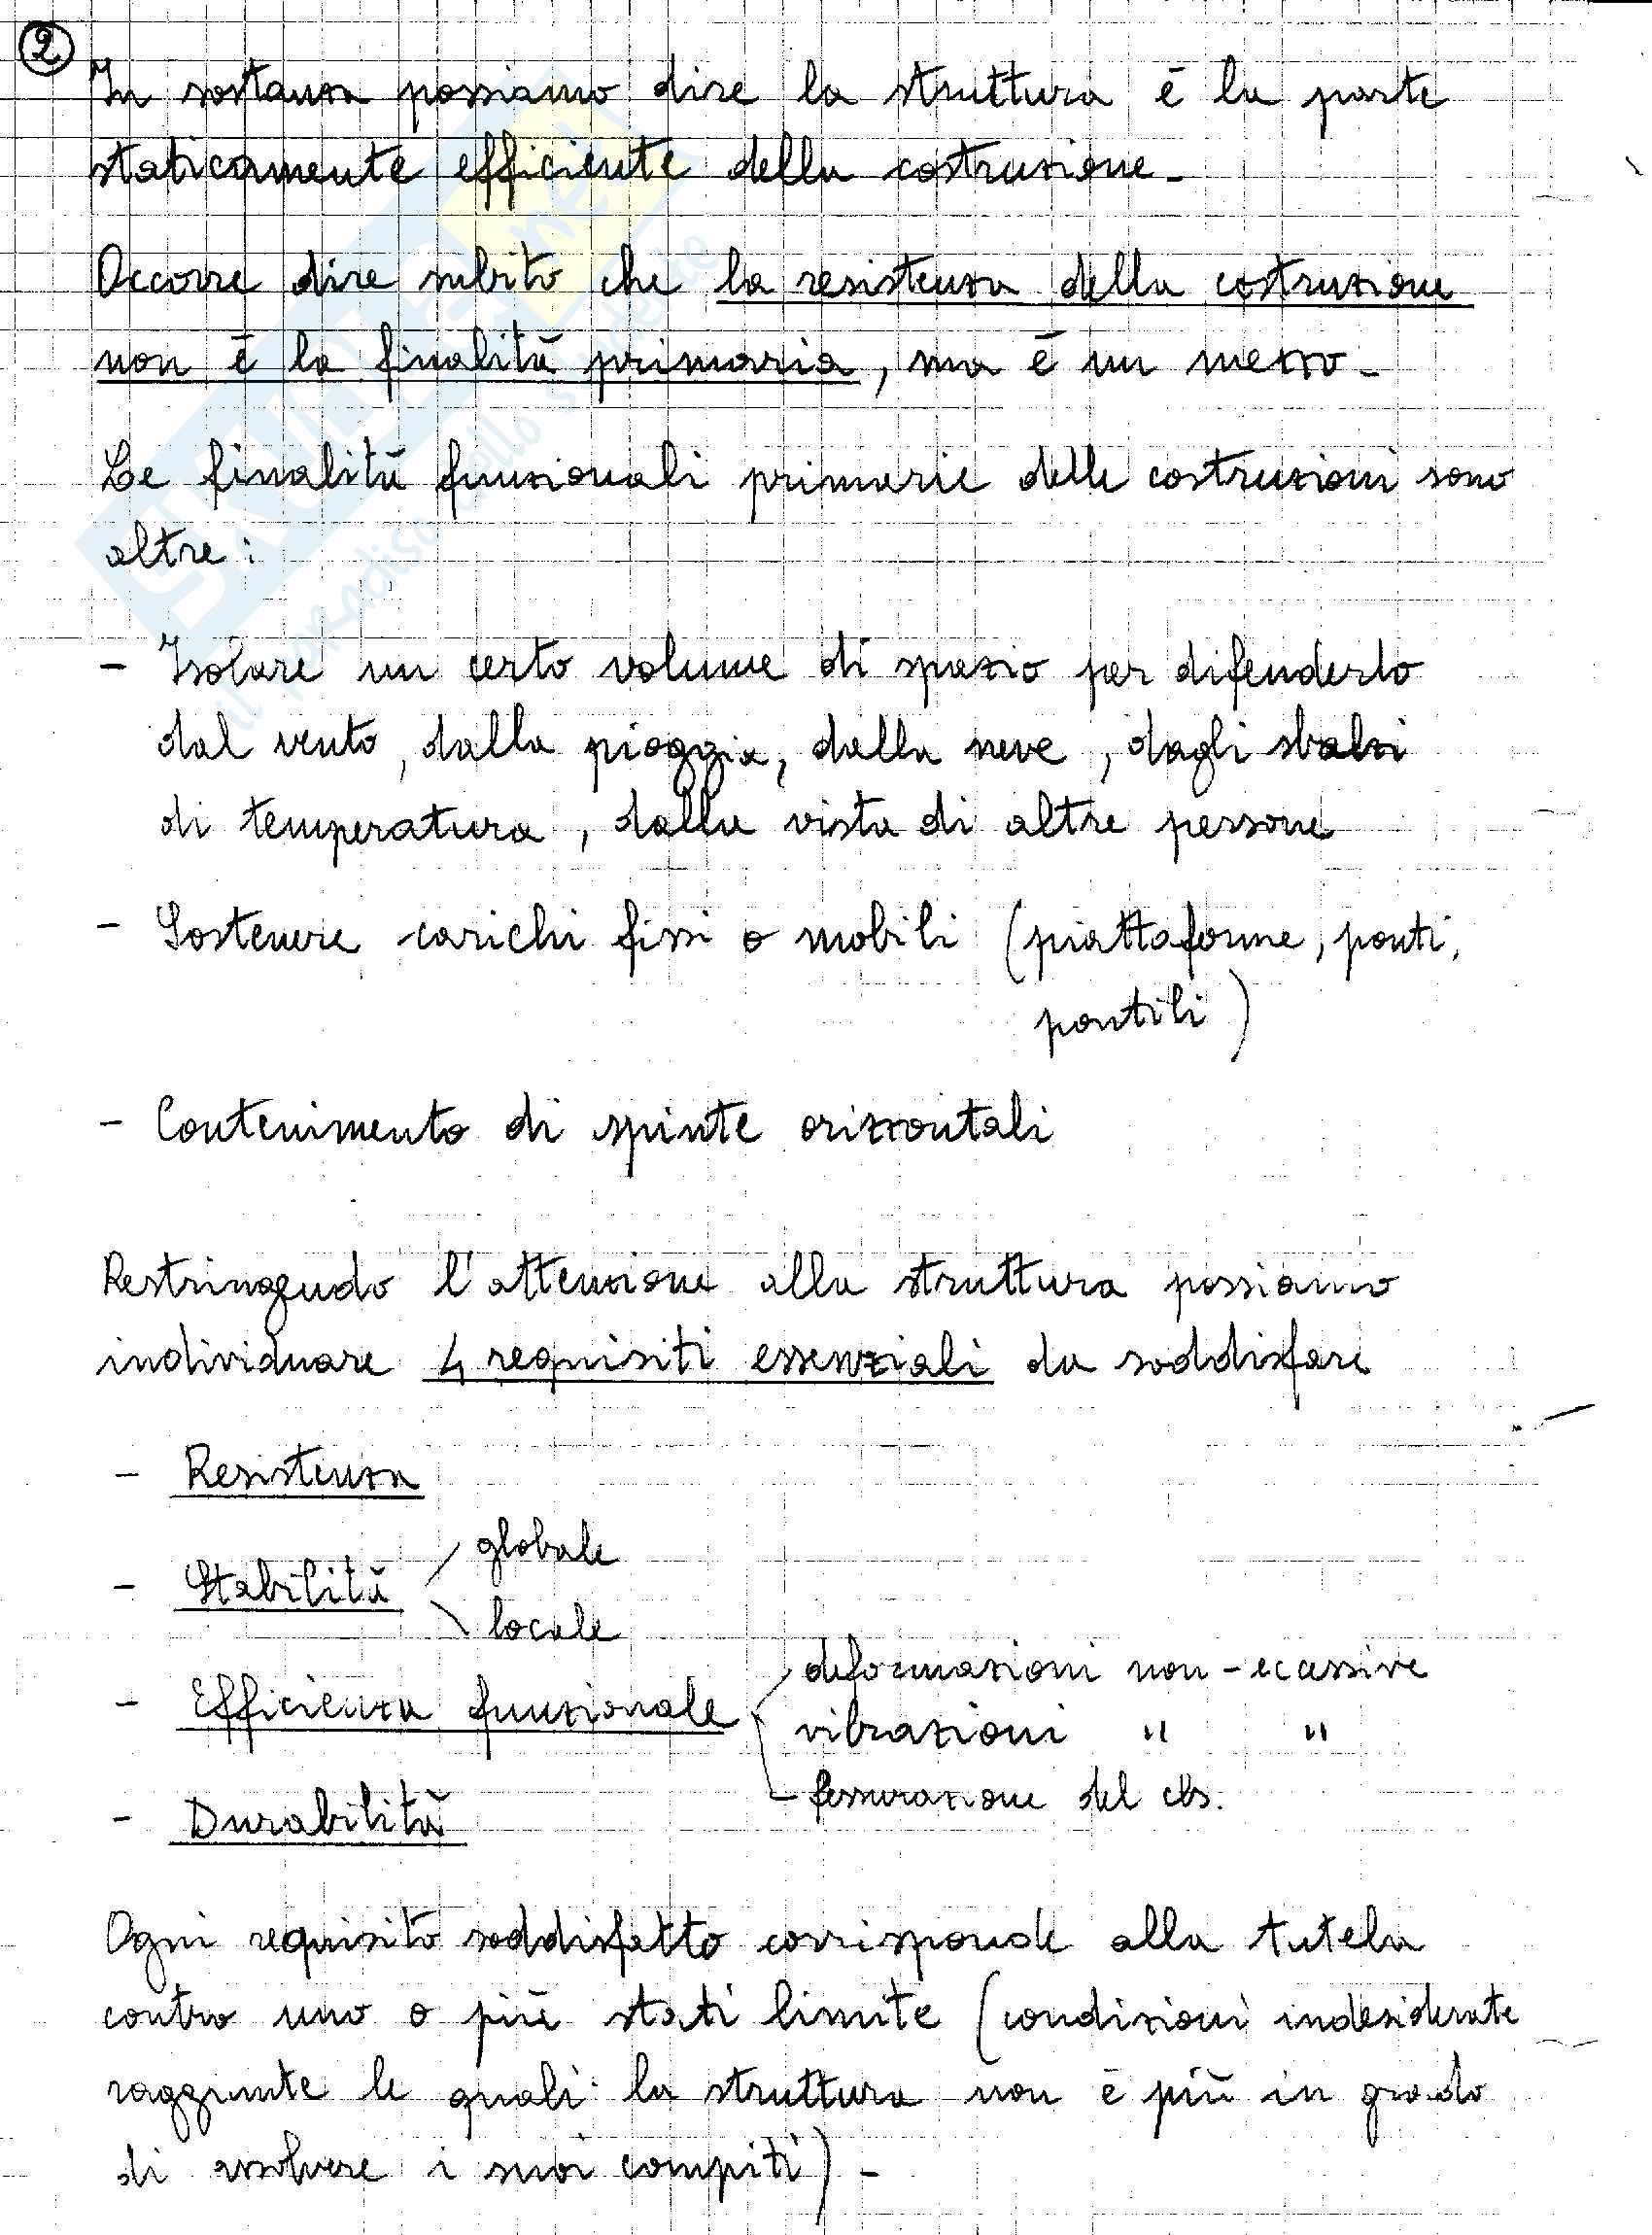 2
In sostanza possiamo dire la struttura è la parte
staticamente efficiente della costruzione.
Occorre dire subito che la resistenza della costruzione
non è la finalità primaria, ma è un mezzo.
Le finalità funzionali primarie delle costruzioni sono
altre:
- Isolare un certo volume di spazio per difenderlo
dal vento, dalla pioggia, dalla neve, dagli sbalzi
di temperatura, dalla vista di altre persone
- Sostenere carichi fissi o mobili (piattaforme, ponti,
pontili)
- Contenimento di spinte orizzontali
Restringendo l'attenzione alla struttura possiamo
individuare 4 requisiti essenziali da soddisfare
- Resistenza
- Stabilità
globale
locale
- Efficienza funzionale
deformazioni non-ecessive
vibrazioni " "
fessurazione del cls.
- Durabilità
Ogni requisito soddisfatto corrisponde alla tutela
contro uno o più stati limite (condizioni indesiderate
raggiunte le quali la struttura non è più in grado
di assolvere i suoi compiti).